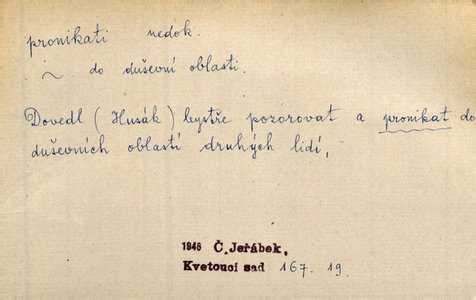 pronikati nedok.
~ do duševní oblasti.
Dovedl (Husák) bystře pozorovat a pronikat do
duševních oblastí druhých lidí,
1946 Č. Jeřábek,
Kvetoucí sad 167. 19.